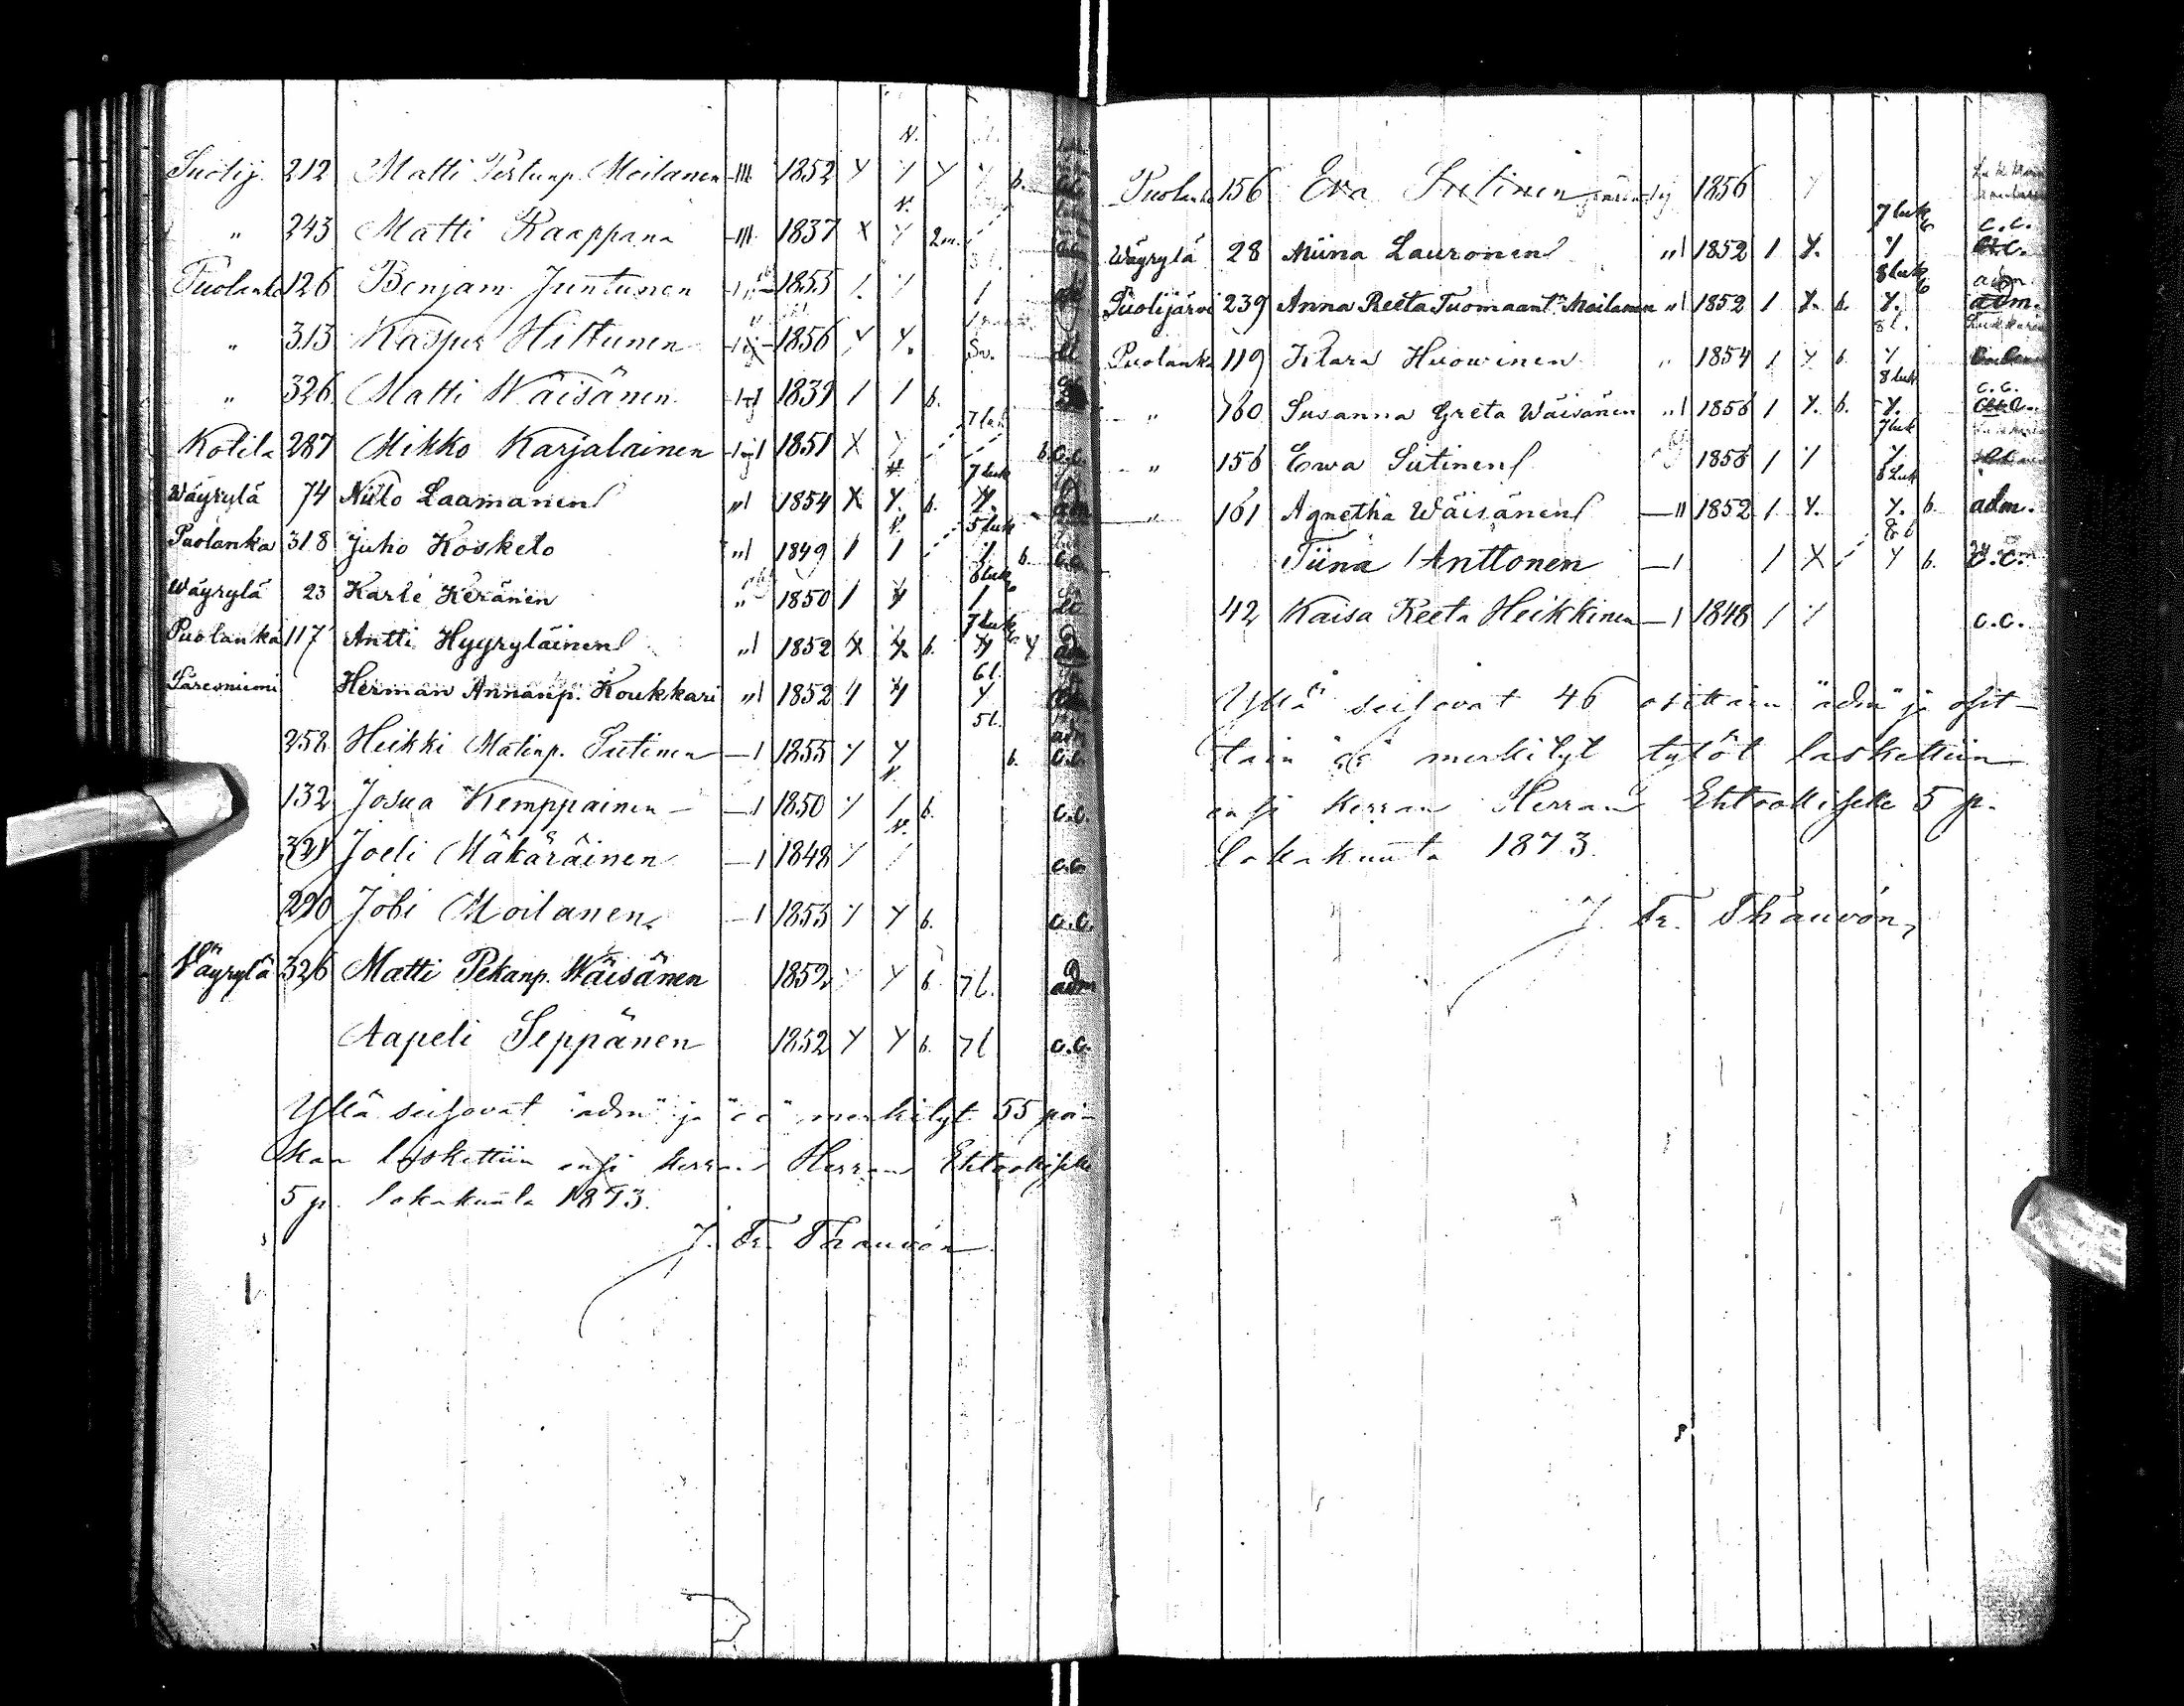 Suolij. 212 Matti Pertunp. Moilanen 1852 b.
" 243 Matti Kaappana 1837 2m.
Puolanka 126 Benjam. Juntunen 1855
" 313 Kaspur Hiltunen 1856
" 326 Matti Wäisänen 1839 b.
Kotila 287 Mikko Karjalainen 1851 7 luk b. c.c.
Wäyrylä 74 Niilo Laamanen 1854 b. 7 luk adm
Puolanka 318 Juho Kosketo 1849 5 luk b. c.c.
Wäyrylä 23 Karle Keränen 1850 6 luk
Puolanka 117 Antti Hyyryläinen 1852 b. 7 luk adm
Särcsniemi Herman Annanp. Koukkari 1852 6 l.
258 Heikki Matinp. Sutinen 1855 5 l. b. c.c.
132 Josua Kemppainen 1850 b. c.c.
321 Joeli Mäkäräinen 1848 c.c.
290 Jobi Moilanen 1853 b. c.c.
Väyrylä 326 Matti Pekanp. Wäisänen 1852 b. 7 l. adm
Aapeli Seppänen 1852 b. 7 l c.c.
Yllä seisovat "adm" ja "cc" merkityt 55 poi-
kaa laskettiin ensi kerran Herran Ehtoolliselle
5 p. lokakuuta 1873.
J. Fr. Thauvón
Puolanka 156 Eva Sutinen 1856
Wäyrylä 28 Miina Lauronen " 1852 7 luk c.c.
Suolijärvi 239 Anna Reeta Tuomaant. Moilanen " 1852 b. 8 luk adm.
Puolanka 119 Klara Huowinen " 1854 b. 8 l.
" 160 Susanna Greta Wäisänen " 1856 b. 8 luk c.c.
" 156 Ewa Sutinen 1856 7 luk
" 161 Agnetha Wäisänen 1852 6 luk b. adm.
Tiina Anttonen b. c.c.
42 Kaisa Reeta Heikkinen 1848 c.c.
Yllä seisovat 46 osittain "adm" ja osit-
tain "cc" merkityt tytöt laskettiin
ensi kerran Herran Ehtoolliselle 5 p.
lokakuuta 1873.
J. Fr. Thauvón